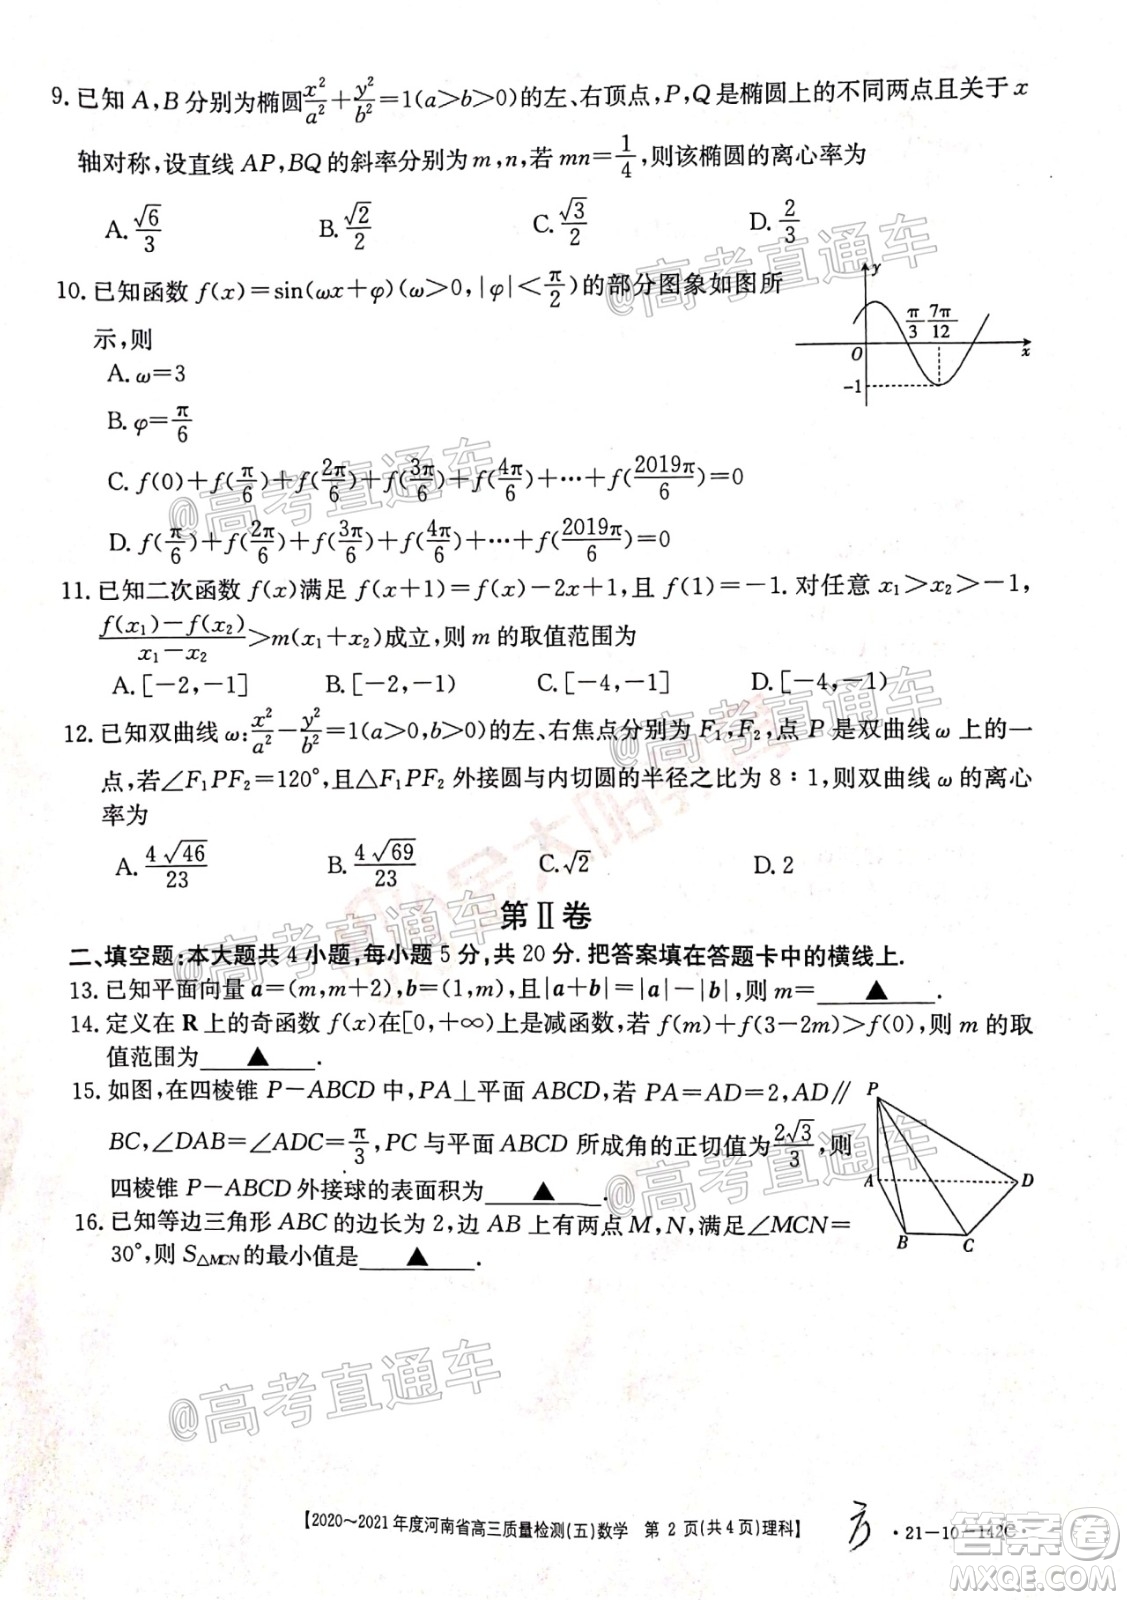 9. 已知 A,B 分别为椭圆 x²/a² + y²/b² =1(a>b>0)的左、右顶点,P,Q 是椭圆上的不同两点且关于 x
轴对称,设直线 AP,BQ 的斜率分别为 m,n,若 mn= 1/4 ,则该椭圆的离心率为
A. √6/3 B. √2/2 C. √3/2 D. 2/3
10. 已知函数 f(x)=sin(ωx+φ)(ω>0,|φ|< π/2 )的部分图象如图所
示,则
y π/3 7π/12 O x -1
A. ω=3
B. φ= π/6
C. f(0)+f(π/6)+f(2π/6)+f(3π/6)+f(4π/6)+···+f(2019π/6)=0
D. f(π/6)+f(2π/6)+f(3π/6)+f(4π/6)+···+f(2019π/6)=0
11. 已知二次函数 f(x)满足 f(x+1)=f(x)-2x+1,且 f(1)=-1. 对任意 x₁>x₂>-1,
(f(x₁)-f(x₂))/(x₁-x₂) >m(x₁+x₂)成立,则 m 的取值范围为
A. [-2,-1] B. [-2,-1) C. [-4,-1] D. [-4,-1)
12. 已知双曲线 ω: x²/a² - y²/b² =1(a>0,b>0)的左、右焦点分别为 F₁,F₂,点 P 是双曲线 ω 上的一
点,若∠F₁PF₂=120°,且△F₁PF₂ 外接圆与内切圆的半径之比为 8∶1,则双曲线 ω 的离心
率为
A. 4√46/23 B. 4√69/23 C. √2 D. 2
第Ⅱ卷
二、填空题:本大题共 4 小题,每小题 5 分,共 20 分. 把答案填在答题卡中的横线上.
13. 已知平面向量 a=(m,m+2),b=(1,m),且|a+b|=|a|-|b|,则 m= ▲ .
14. 定义在 R 上的奇函数 f(x)在[0,+∞)上是减函数,若 f(m)+f(3-2m)>f(0),则 m 的取
值范围为 ▲ .
15. 如图,在四棱锥 P-ABCD 中,PA⊥平面 ABCD,若 PA=AD=2,AD∥
BC,∠DAB=∠ADC= π/3 ,PC 与平面 ABCD 所成角的正切值为 2√3/3 ,则
四棱锥 P-ABCD 外接球的表面积为 ▲ .
P A B C D
16. 已知等边三角形 ABC 的边长为 2,边 AB 上有两点 M,N,满足∠MCN=
30°,则 S△MCN的最小值是 ▲ .
【2020~2021 年度河南省高三质量检测(五)数学 第 2 页(共 4 页)理科】
方
·21-10-142C·
@高考直通车
@高考直通车
@高考直通车
@高考直通车
@高考直通车
@高考直通车
@高考直通车
@高考直通车
答案圈
MXQE.COM